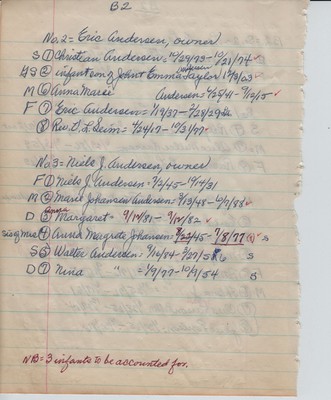 B2
No. 2 = Eric Andersen, owner
S ① Christian Andersen = 10/29/73 - 10/21/74 ✓
GS ② infant son of John & Emma Taylor 12/9/03 ✓
M ③ Anna Marie Andersen = 4/25/41 - 9/12/15 ✓
F ① Eric Andersen = 1/19/37 - 2/28/29
⑧ Rev. D. L. Seim = 4/24/17 - 10/31/77 ✓
No. 3 = Niels J. Andersen, owner
F ① Niels J. Andersen = 7/2/45 - 10/14/31
M ② Marie Johansen Andersen = 9/13/48 - 4/7/88 ✓
D ③ Margaret " 9/14/81 - 9/14/82 ✓
sis of mrs ④ Anna Margrete Johansen = 8/22/45 - 7/8/77 S
S ⑤ Walter Andersen = 9/10/84 - 3/27/56 S
D ⑦ Nina " = 1/9/77 - 10/3/54 S
NB = 3 infants to be accounted for.